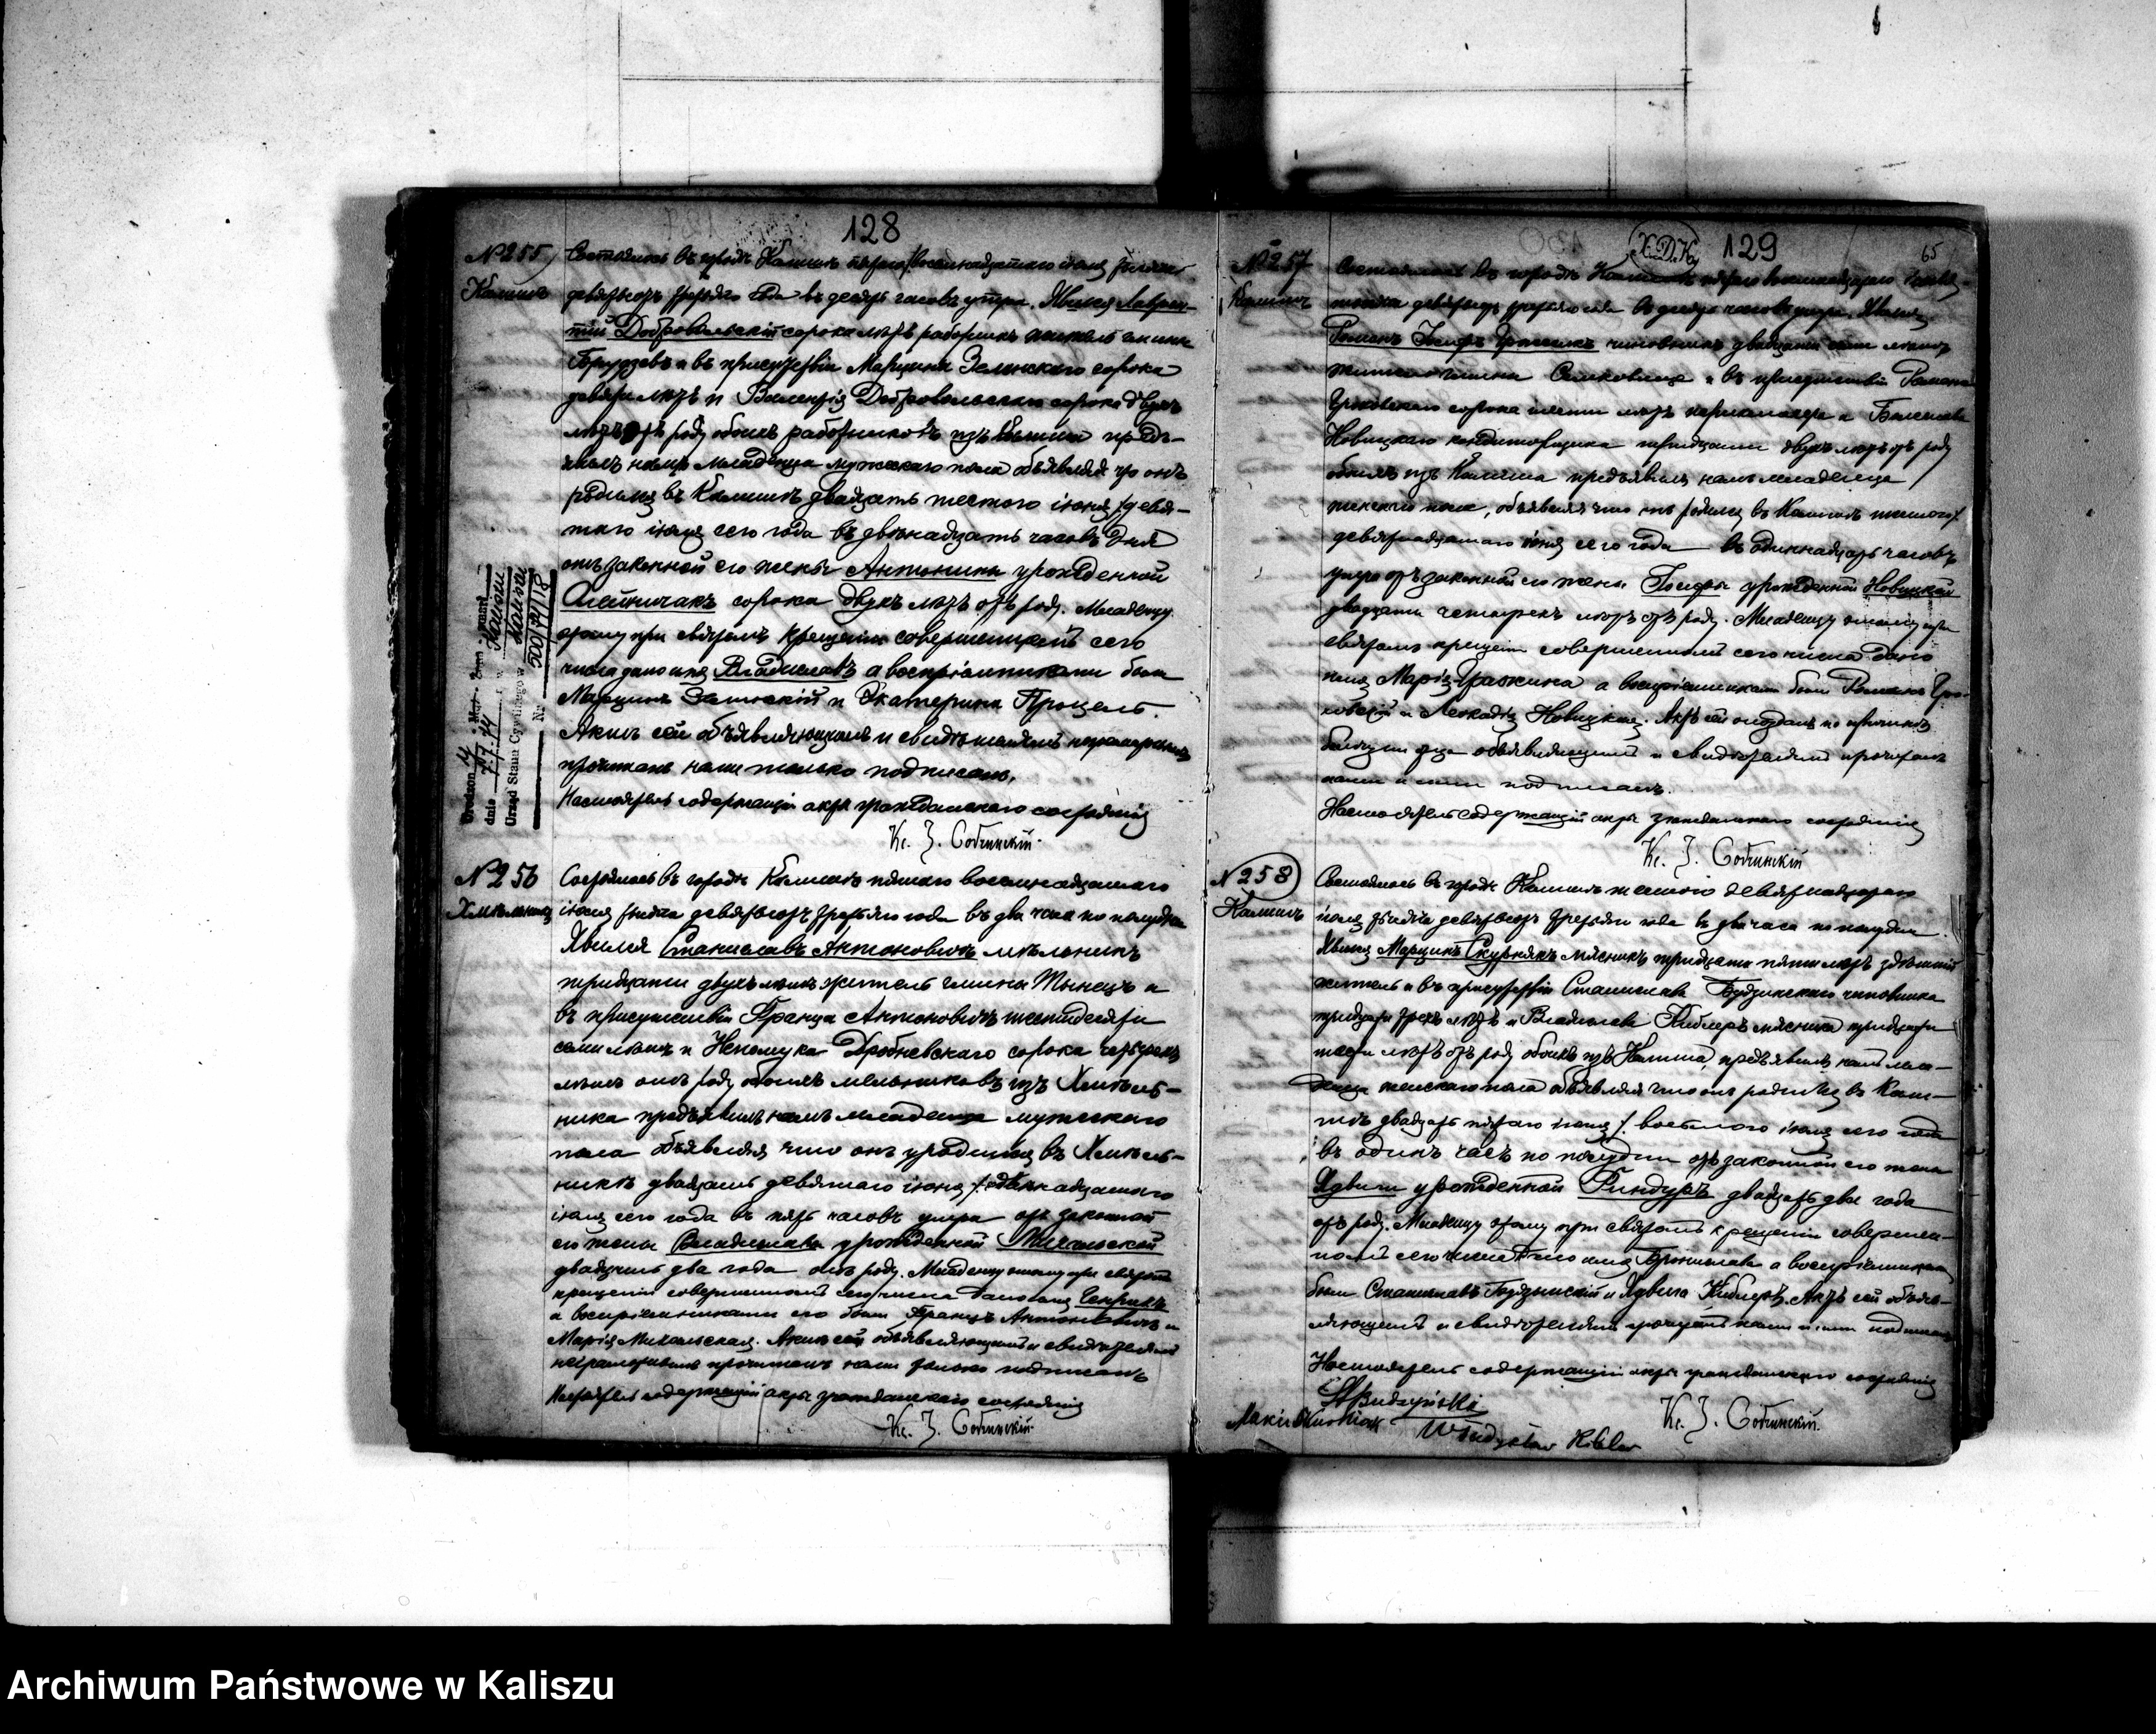 128
№255
Калишъ
Состоялось въ городѣ Калишѣ пятаго /восемнадцатаго іюля тысяча
девятьсотъ третьяго года въ десять часовъ утра. Явился Лаврен-
тій Добровольскій сорока лѣтъ работникъ житель гмины
Брудзевъ и въ присутствіи Марцина Зелинскаго сорока
девяти лѣтъ и Валентія Добровольскаго сорока двухъ
лѣтъ отъ роду обоихъ работниковъ изъ Калиша предъ-
явилъ намъ младенца мужескаго пола объявляя что онъ
родился въ Калишѣ двадцать шестого іюня /девя-
таго іюля сего года въ двѣнадцать часовъ дня
отъ законной его жены Антонины урожденной
сорока двухъ лѣтъ отъ роду. Младенцу
этому при святомъ крещеніи совершенномъ сего
числа дано имя Владиславъ а воспріемниками были
Марцинъ Зелинскій и Екатерина
Актъ сей объявляющему и свидѣтелямъ неграмотнымъ
прочитанъ нами только подписанъ.
Настоятель содержащій акты гражданскаго состоянія
Кс. З. Собчинскій
dnia
Urząd Stanu Cywilnego w
Nr
№256
Состоялось въ городѣ Калишѣ пятаго восемнадцатаго
іюля тысяча девятьсотъ третьяго года въ два часа по полудни
Явился Станиславъ Антоновичъ мѣльникъ
тридцати двухъ лѣтъ житель гмины Тынецъ и
въ присутствіи Франца Антоновичъ шестидесяти
семи лѣтъ и Непомука Дробневскаго сорока четырехъ
лѣтъ отъ роду обоихъ мельниковъ изъ Хмѣль-
ника предъявилъ намъ младенца мужескаго
пола объявляя что онъ уродился въ Хмѣль-
никѣ двадцать девятаго іюня /.двѣнадцатаго
іюля сего года въ пять часовъ утра отъ законной
его жены Владиславы урожденной Михальской
двадцать два года отъ роду. Младенцу этому при святомъ
крещеніи совершенномъ сего числа дано имя Генрикъ
а воспріемниками его были Францъ Антоновичъ и
Марія Михальская. Актъ сей объявляющему и свидѣтелямъ
неграмотнымъ прочитанъ нами только подписанъ
Настоятель содержащій акты гражданскаго состоянія
Кс. З. Собчинскій
Х.Д.К.
129
65
№257
Калишъ
Состоялось въ городѣ Калишѣ пятаго восемнадцатаго іюля
тысяча девятьсотъ третьяго года въ десять часовъ утра. Явился
Романъ Іосифъ чиновникъ двадцати семи лѣтъ
житель гмины и въ присутствіи Романа
сорока шести лѣтъ и Болеслава
Новицкаго кондитерщика тридцати двухъ лѣтъ отъ роду
обоихъ изъ Калиша предъявилъ намъ младенца
женскаго пола, объявляя что онъ родился въ Калишѣ шестого/
девятнадцатаго іюня сего года въ одиннадцать часовъ
утра отъ законной его жены урожденной Новицкой
двадцати четырехъ лѣтъ отъ роду. Младенцу этому при
святомъ крещеніи совершенномъ сего числа дано
имя Марія-Гражина а воспріемниками были Романъ
и Леокадія Новицкая. Актъ сей опозданъ по причинѣ
отца объявляющему и свидѣтелямъ прочитанъ
нами и ими подписанъ.
Настоятель содержащій акты гражданскаго состоянія
Кс. З. Собчинскій
№258
Калишъ
Состоялось въ городѣ Калишѣ шестого девятнадцатаго
іюля тысяча девятьсотъ третьяго года въ два часа по полудни.
Явился Марцинъ Скурнякъ мясникъ тридцати пяти лѣтъ здѣшній
житель и въ присутствіи Станислава Будзинскаго чиновника
тридцати трехъ лѣтъ и Владислава Киблеръ мясника тридцати
шести лѣтъ отъ роду обоихъ изъ Калиша, предъявилъ намъ мла-
денца женскаго пола объявляя что онъ родился въ Кали-
шѣ двадцать пятаго іюня /. восьмого іюля сего года
въ одинъ часъ по полудни отъ законной его жены
Ядвиги урожденной Риндуръ двадцать два года
отъ роду. Младенцу этому при святомъ крещеніи совершен-
номъ сего числа дано имя Бронислава а воспріемниками
были Станиславъ Будзинскій и Ядвига Киблеръ. Актъ сей объяв-
ляющему и свидѣтелямъ прочитанъ нами и ими подписанъ
Настоятель содержащій акты гражданскаго состоянія
StBudzyński
Marcin Skurniak
Władysław Kibler
Кс. З. Собчинскій
Archiwum Państwowe w Kaliszu